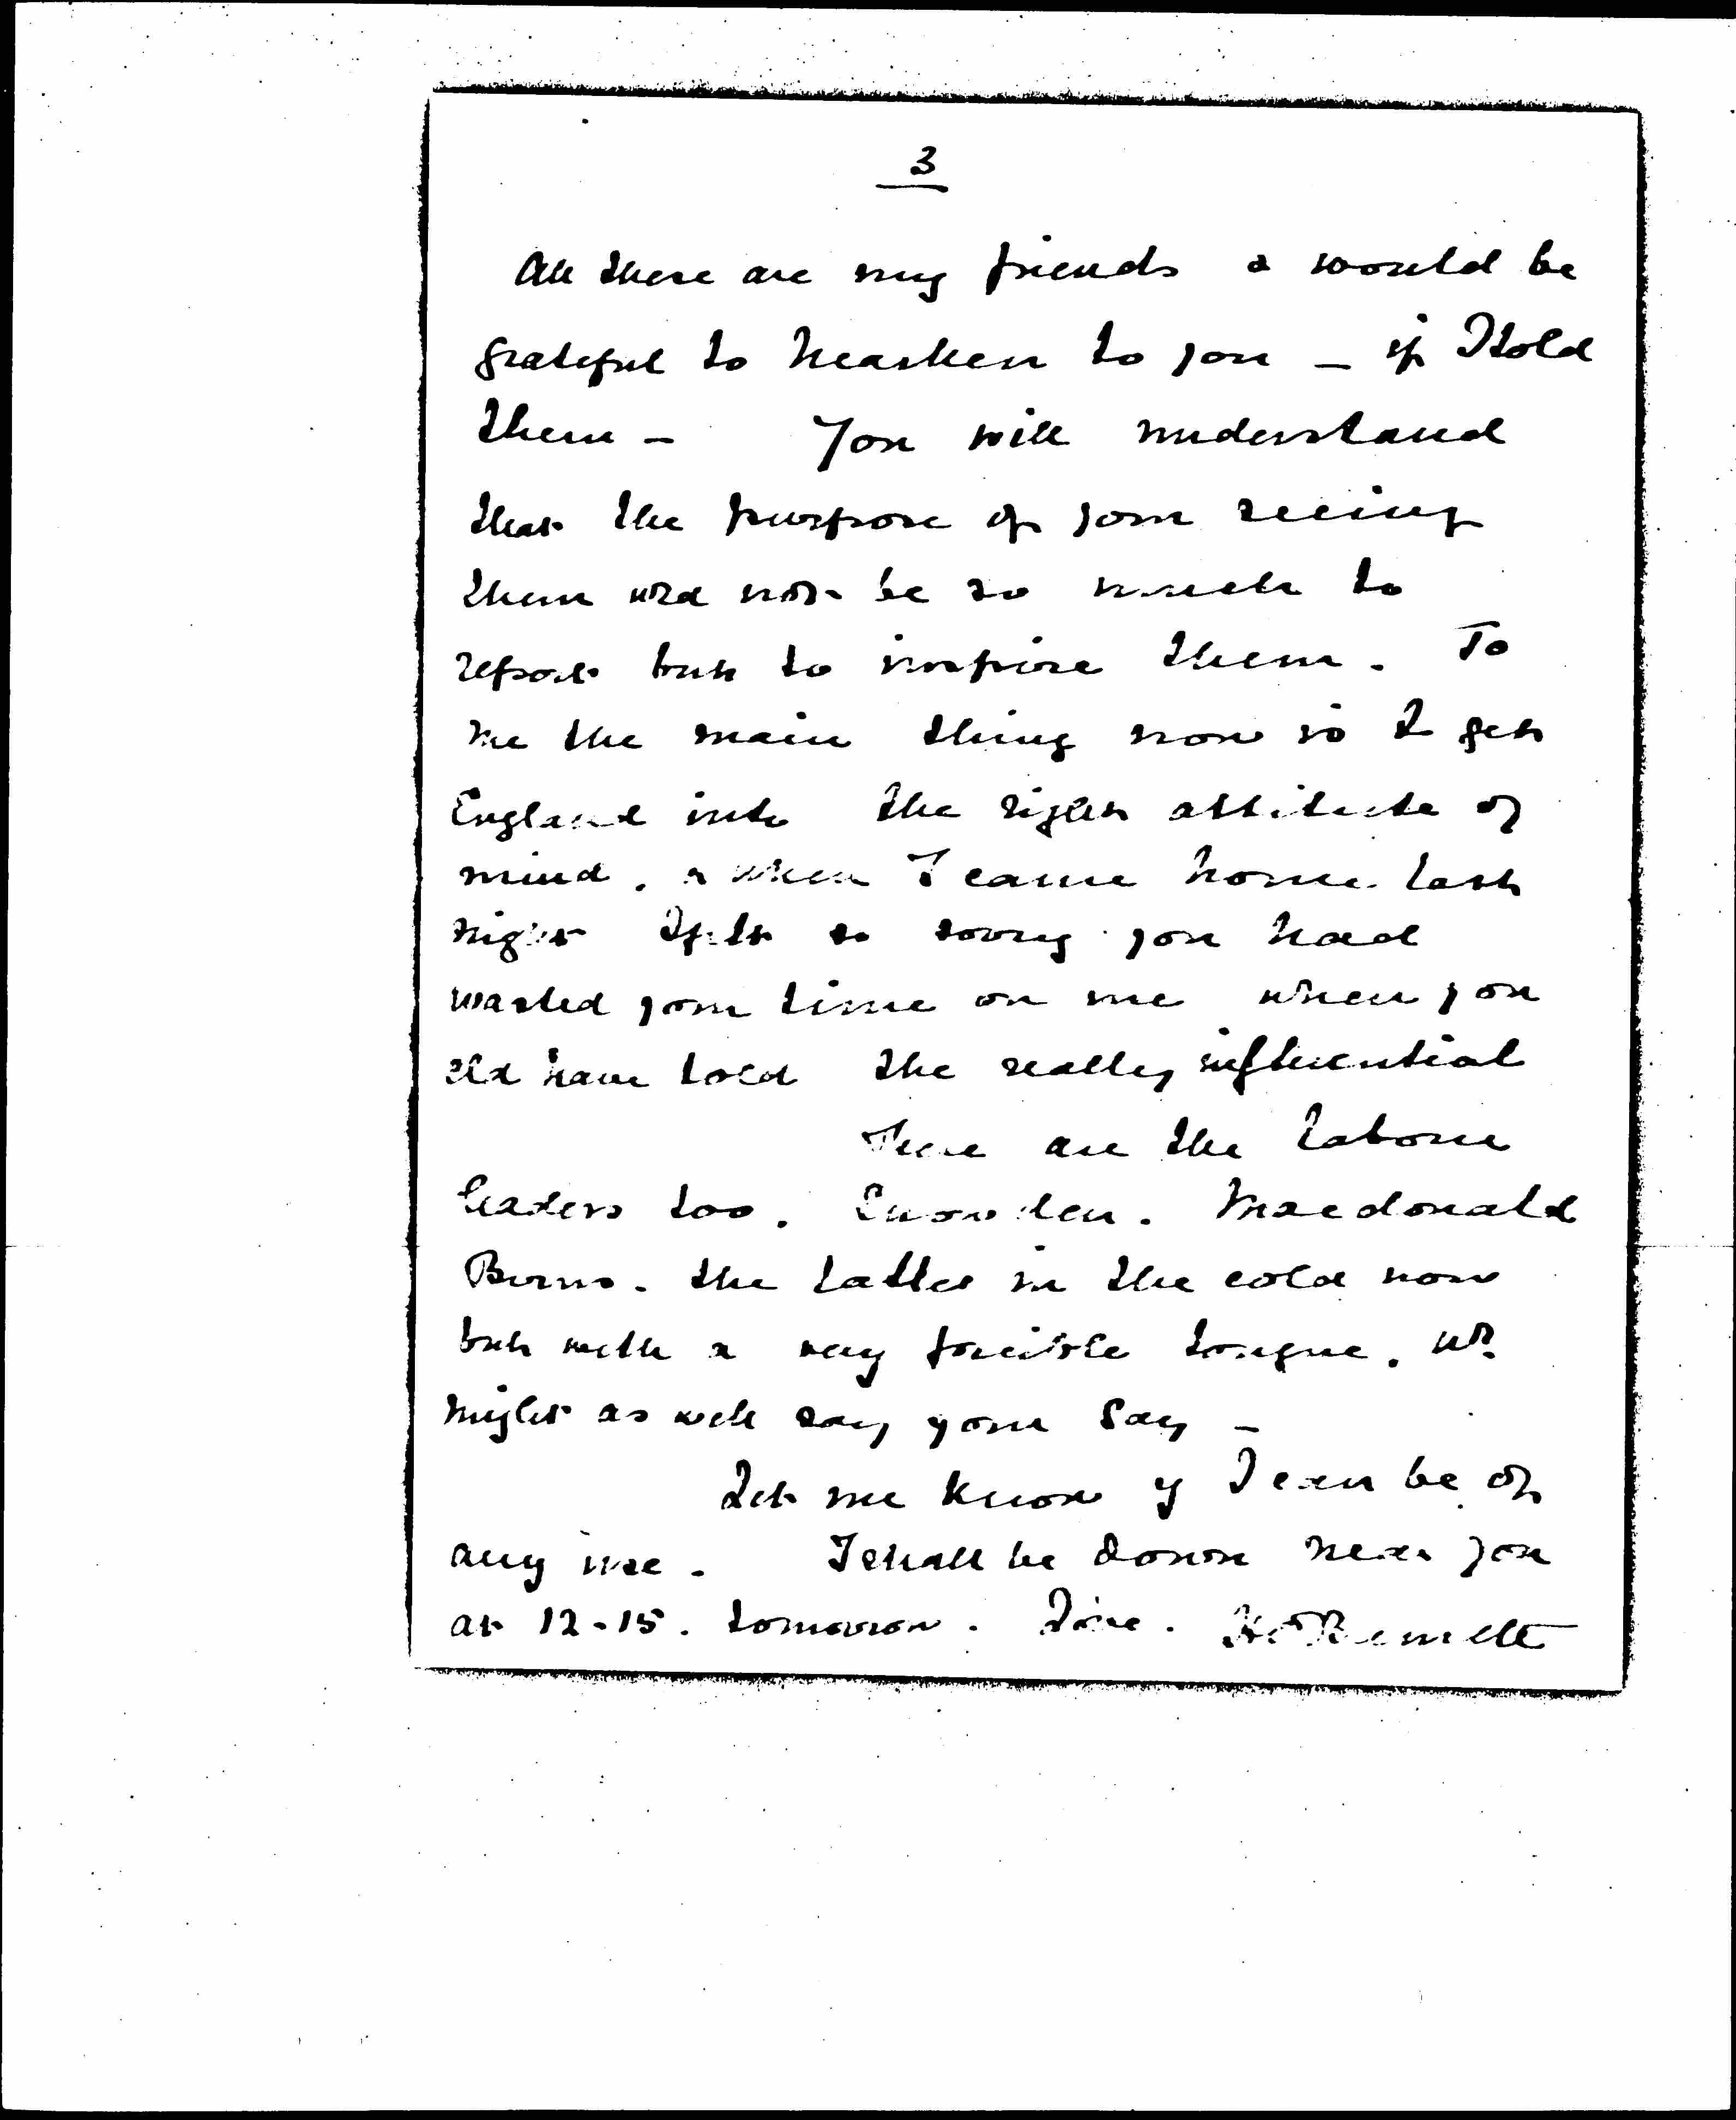 3
All these are my friends & would be
grateful to hearken to you – if I told
them – You will understand
that the purpose of your seeing
them wld not be so much to
report but to inspire them. To
me the main thing now is to get
England into the right attitude of
mind. & when I came home last
night I felt so sorry you had
wasted your time on me when you
cld have told the really influential
There are the Labour
leaders too. Snowden. Macdonald
Burns. the latter in the cold now
but with a very forcible tongue.
might as well say your say –
Let me know if I can be of
any use. I shall be down near you
at 12-15. tomorrow.